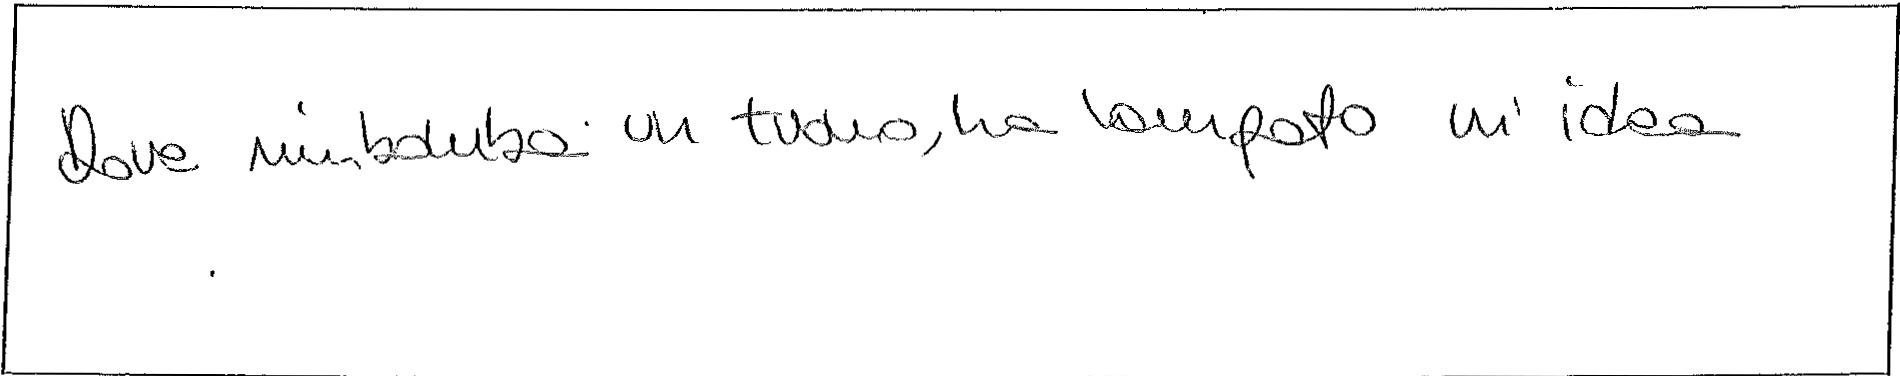 Dove rimbomba un tuono, ha lampato un'idea